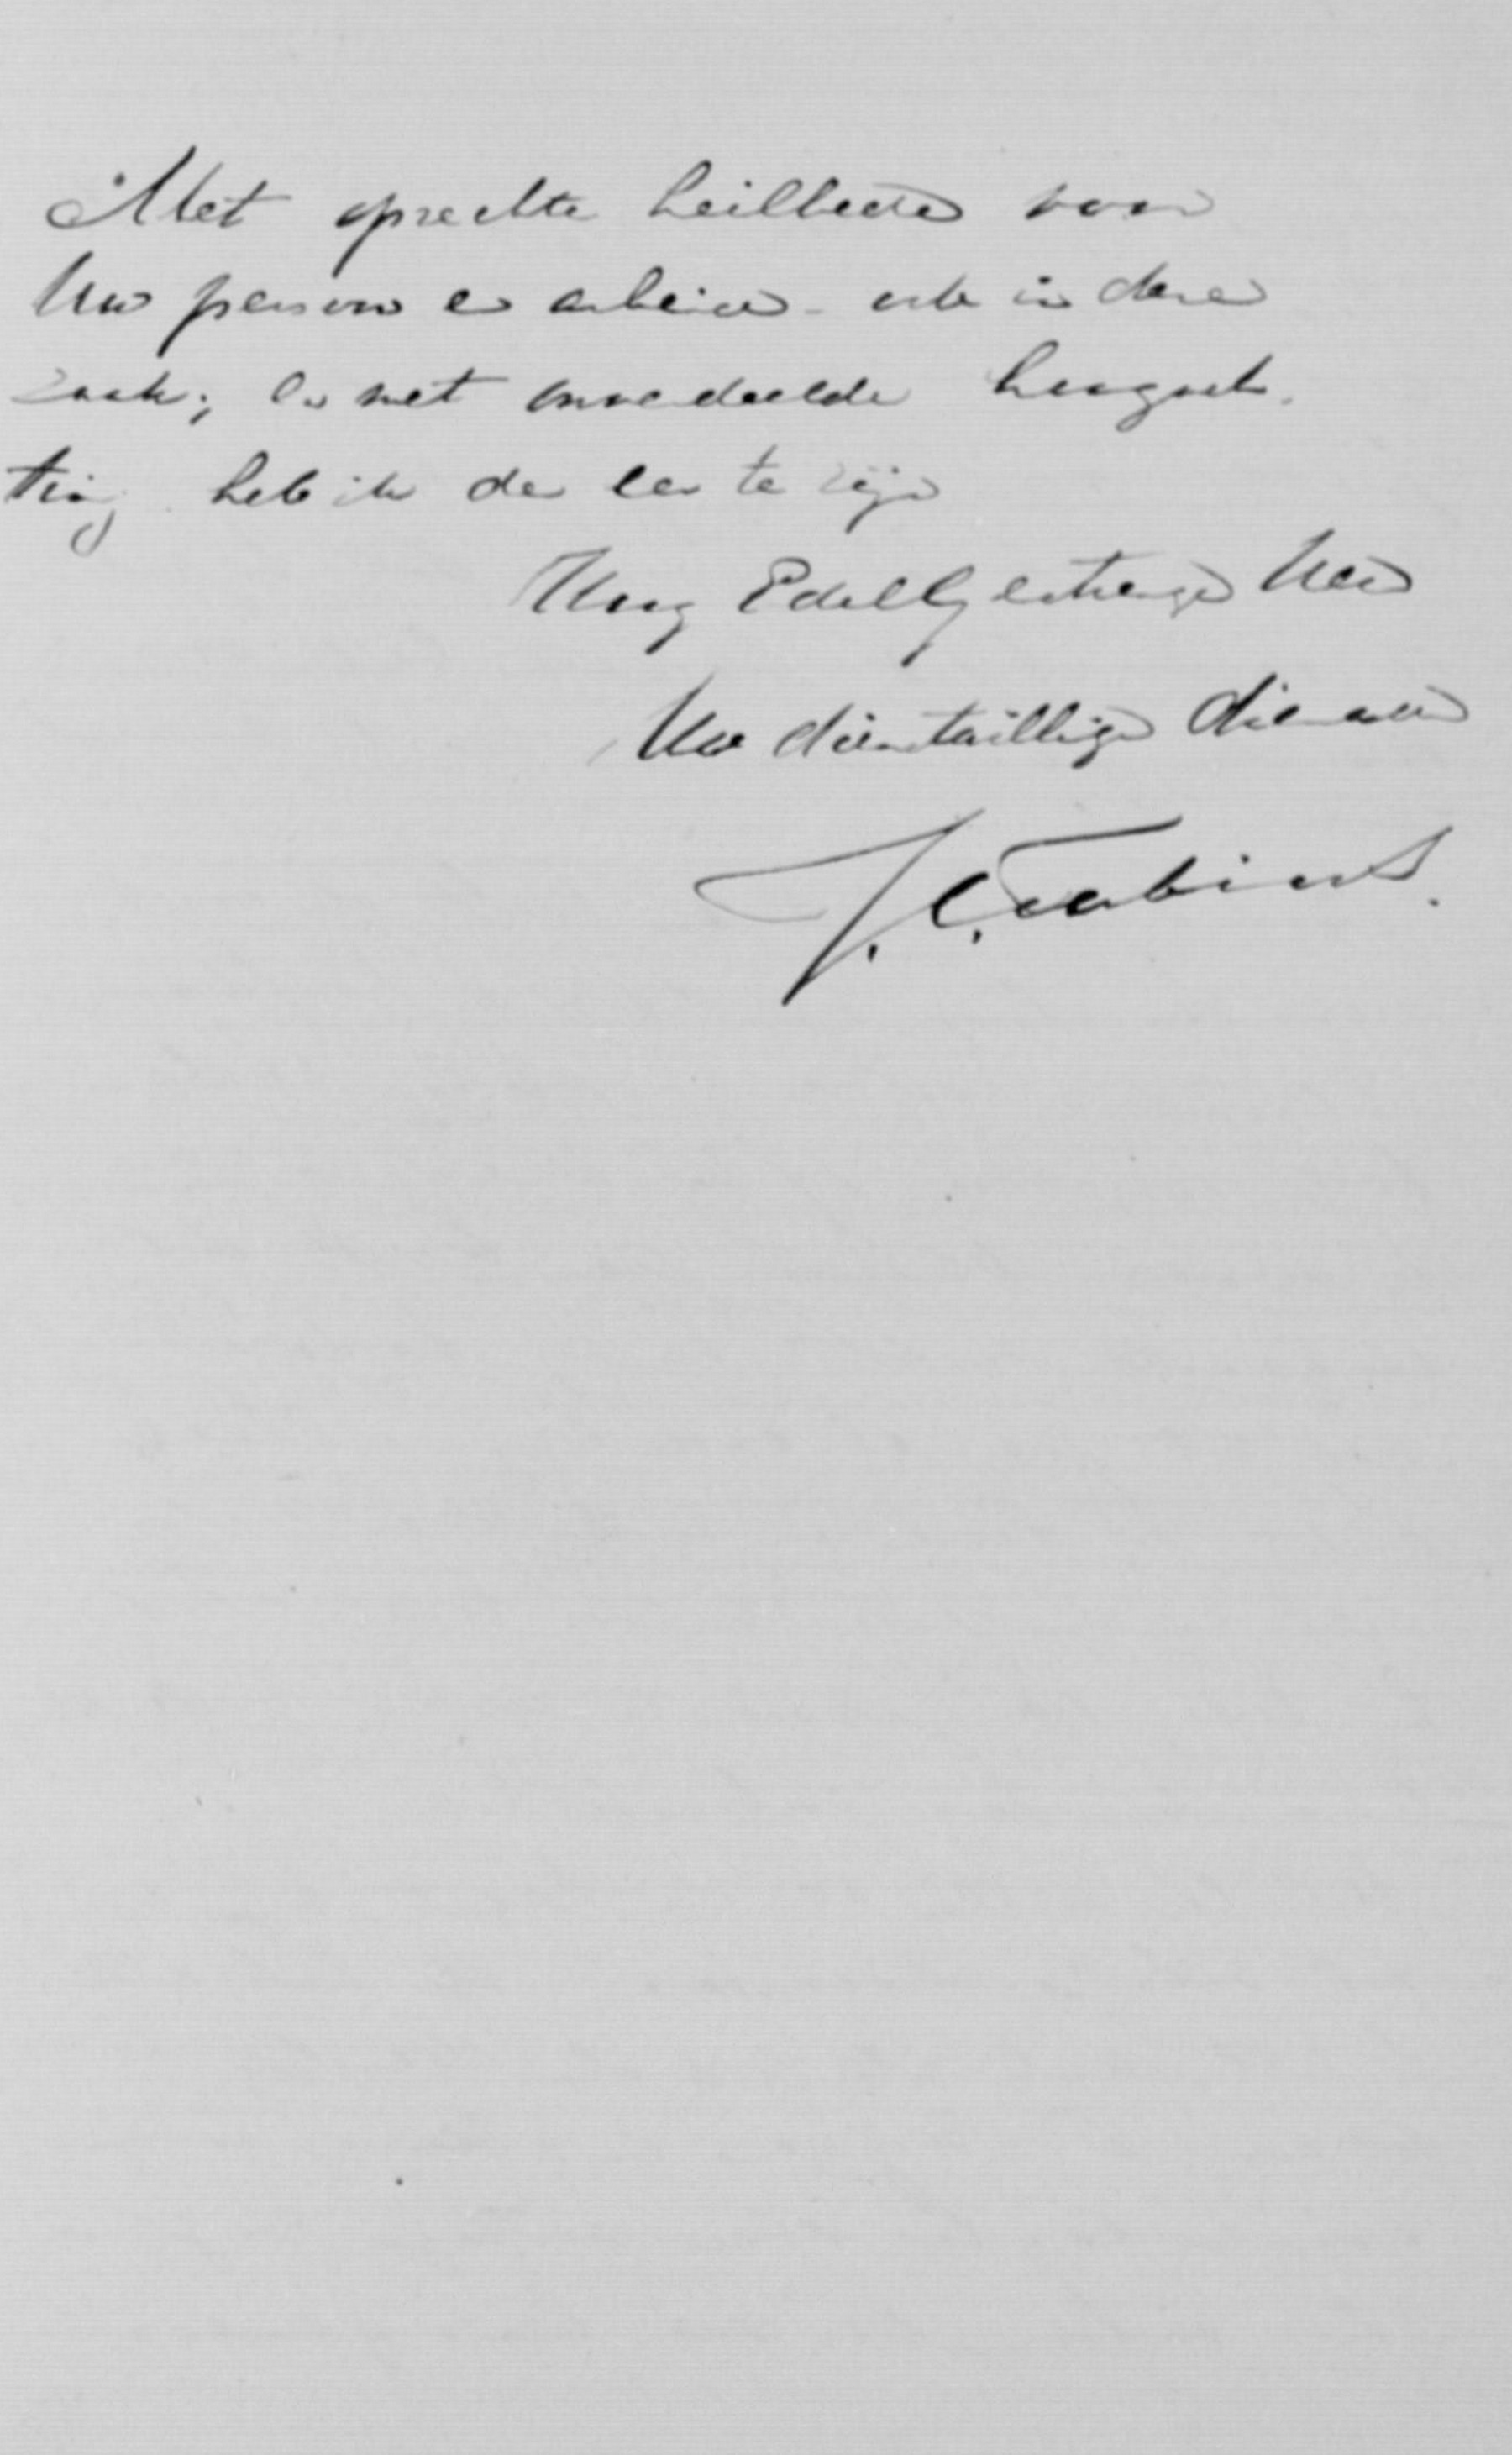 Met oprechte heilbede voor
Uw persoon en arbeid - ook in deze
zaak; en met onverdeelde hoogach-
ting heb ik de eer te zijn
Hoog EdelGestrenge Heer
Uw dienstwillige dienaar
J. C.